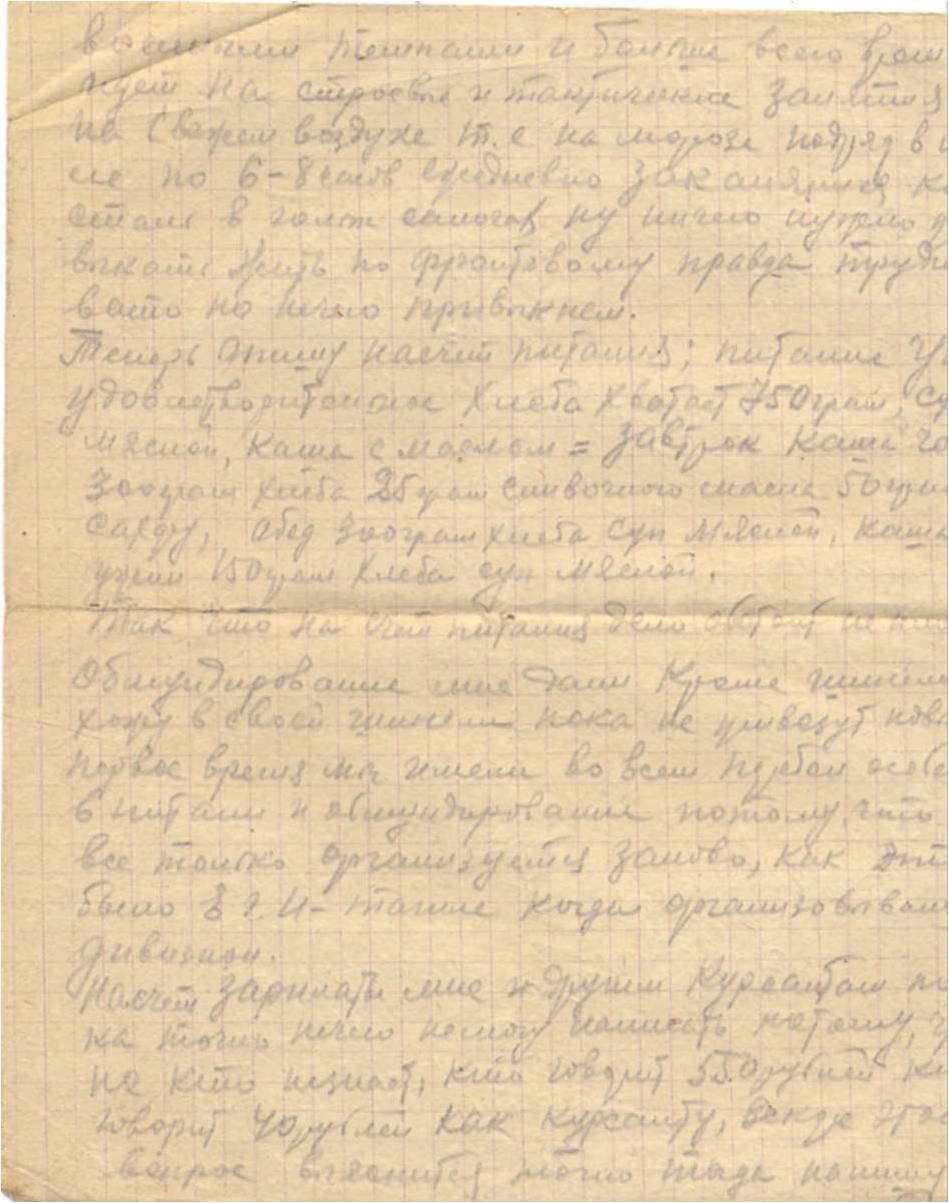 военными темпами и больше всего врем
идет на строевые и тактические занятия
на свежем воздухе т.е на морозе подряд в
по 6-8 часов ежедневно закаляемся к
сталь в сапогах ну ничего нужно п
выкать жить по фронтовому правда трудн
вато но ничего привыкнем.
Теперь опишу насчет питания; питание у
удовлетворительное хлеба хватает 750 грам, су
мясной, каша с маслом = завтрак каша
300 грам хлеба 25 грам сливочного масла 50 грам
сахару, абед 300 грам хлеба суп мясной, каша
ужин 150 грам хлеба суп мясной.
Так что на счет питания дело обстоит не
Обмундирование мне дали кроме шинели
хожу в своей шинели пока не привезут нов
первое время мы имели во всем перебои особе
в питании и обмундировании потому, что
все только организуется заново, как эт
было в г. когда организовывали
дивизион.
Насчет зарплаты мне и другим курсантам п
ка точно ничего немогу написать потому, ч
не кто незнает, кто говорит 550 рублей к
говорит 40 рублей как курсанту, этот
вопрос выяснится точно тогда напишу